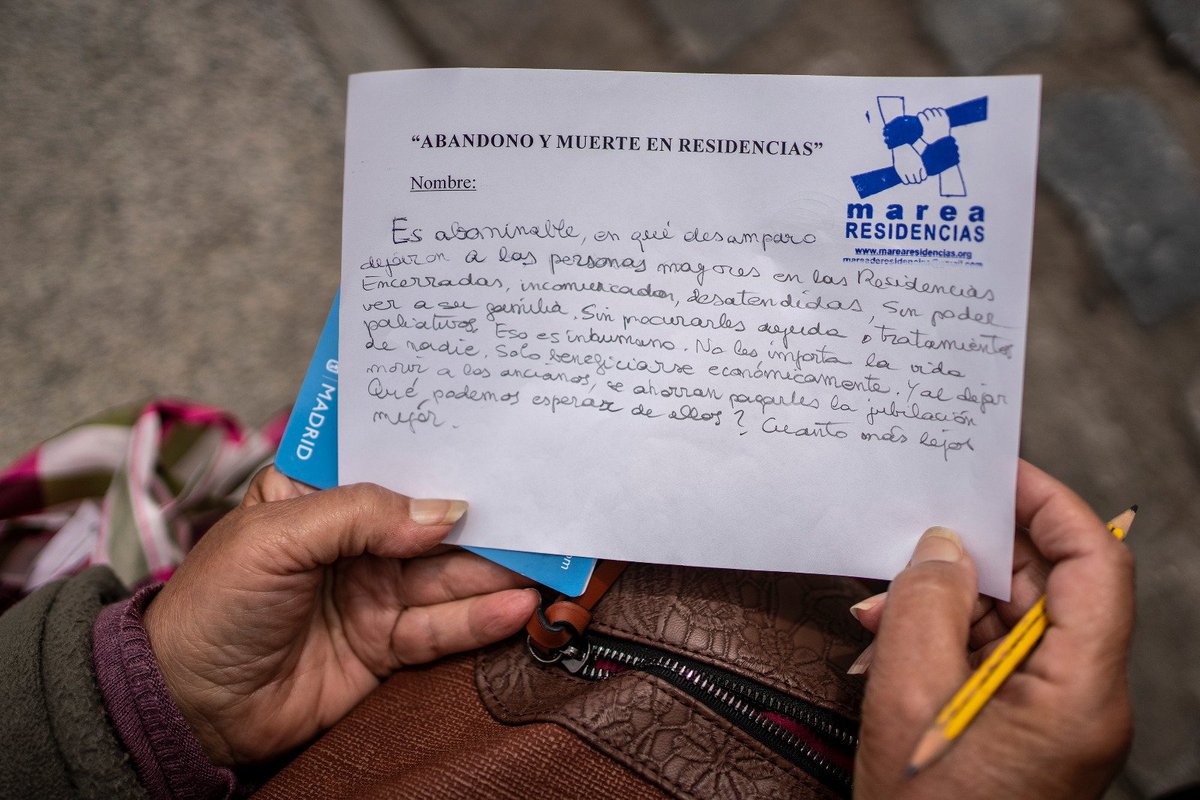 “ABANDONO Y MUERTE EN RESIDENCIAS”
Nombre:
marea
RESIDENCIAS
www.marearesidencias.org
mareaderesidencias@gmail.com
Es abominable, en qué desamparo
dejaron a las personas mayores en las Residencias
Encerradas, incomunicadas, desatendidas, sin poder
ver a su familia. Sin procurarles ayuda o tratamientos
paliativos. Eso es inhumano. No les importa la vida
de nadie. Solo beneficiarse económicamente. Y al dejar
morir a los ancianos, se ahorran pagarles la jubilación
Qué podemos esperar de ellos? Cuanto más lejos
mejor.
MADRID
.com